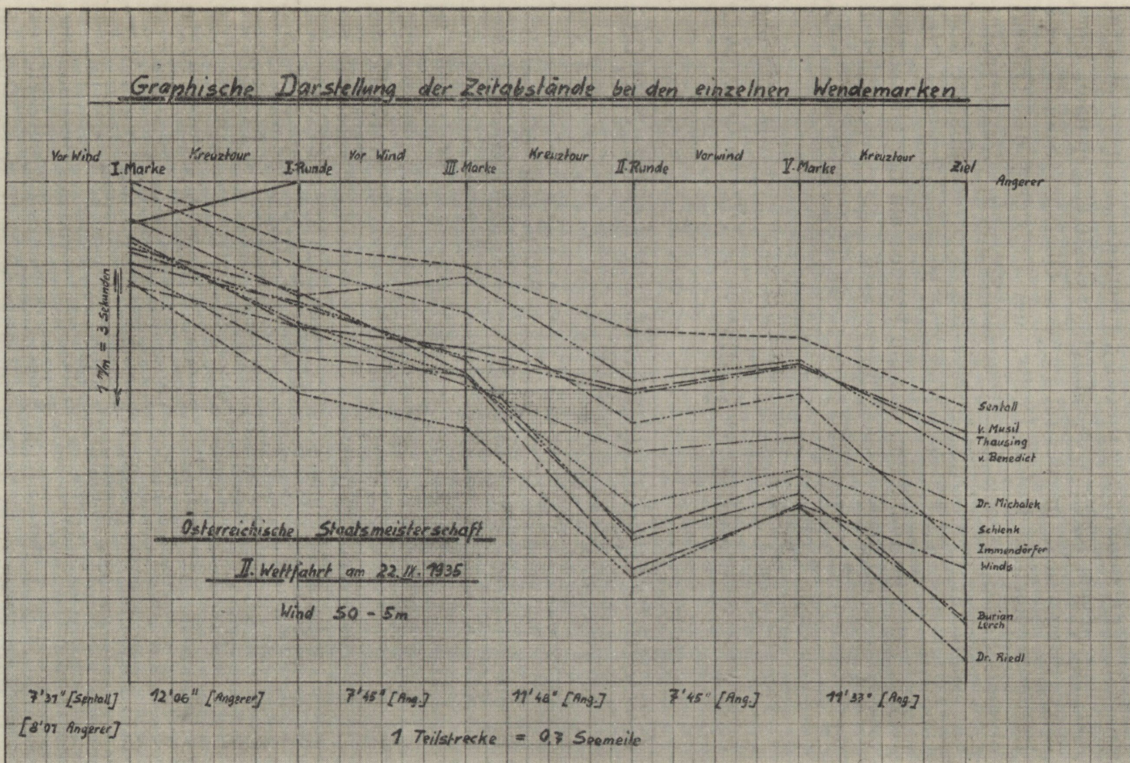 Graphische Darstellung der Zeitabstände bei den einzelnen Wendemarken
Vor Wind Kreuztour Vor Wind Kreuztour Vorwind Kreuztour
I. Marke I. Runde III. Marke II. Runde V. Marke Ziel
Angerer
1 m/m = 3 Sekunden
Sentall
v. Musil
Thausing
v. Benedict
Dr. Michalek
Schlenk
Immendörfer
Windis
Burian
Lerch
Dr. Riedl
Österreichische Staatsmeisterschaft
II. Wettfahrt am 22. IX. 1935
Wind SO - 5m
7'31" [Sentall] 12'06" [Angerer] 7'45" [Ang.] 11'48" [Ang.] 7'45" [Ang.] 11'37" [Ang.]
[8'01 Angerer]
1 Teilstrecke = 0,7 Seemeile